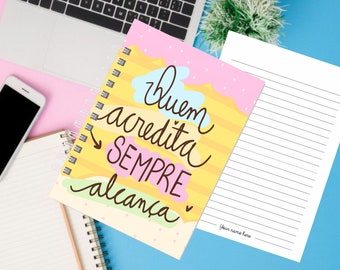 Quem
acredita
SEMPRE
alcança
Your name here